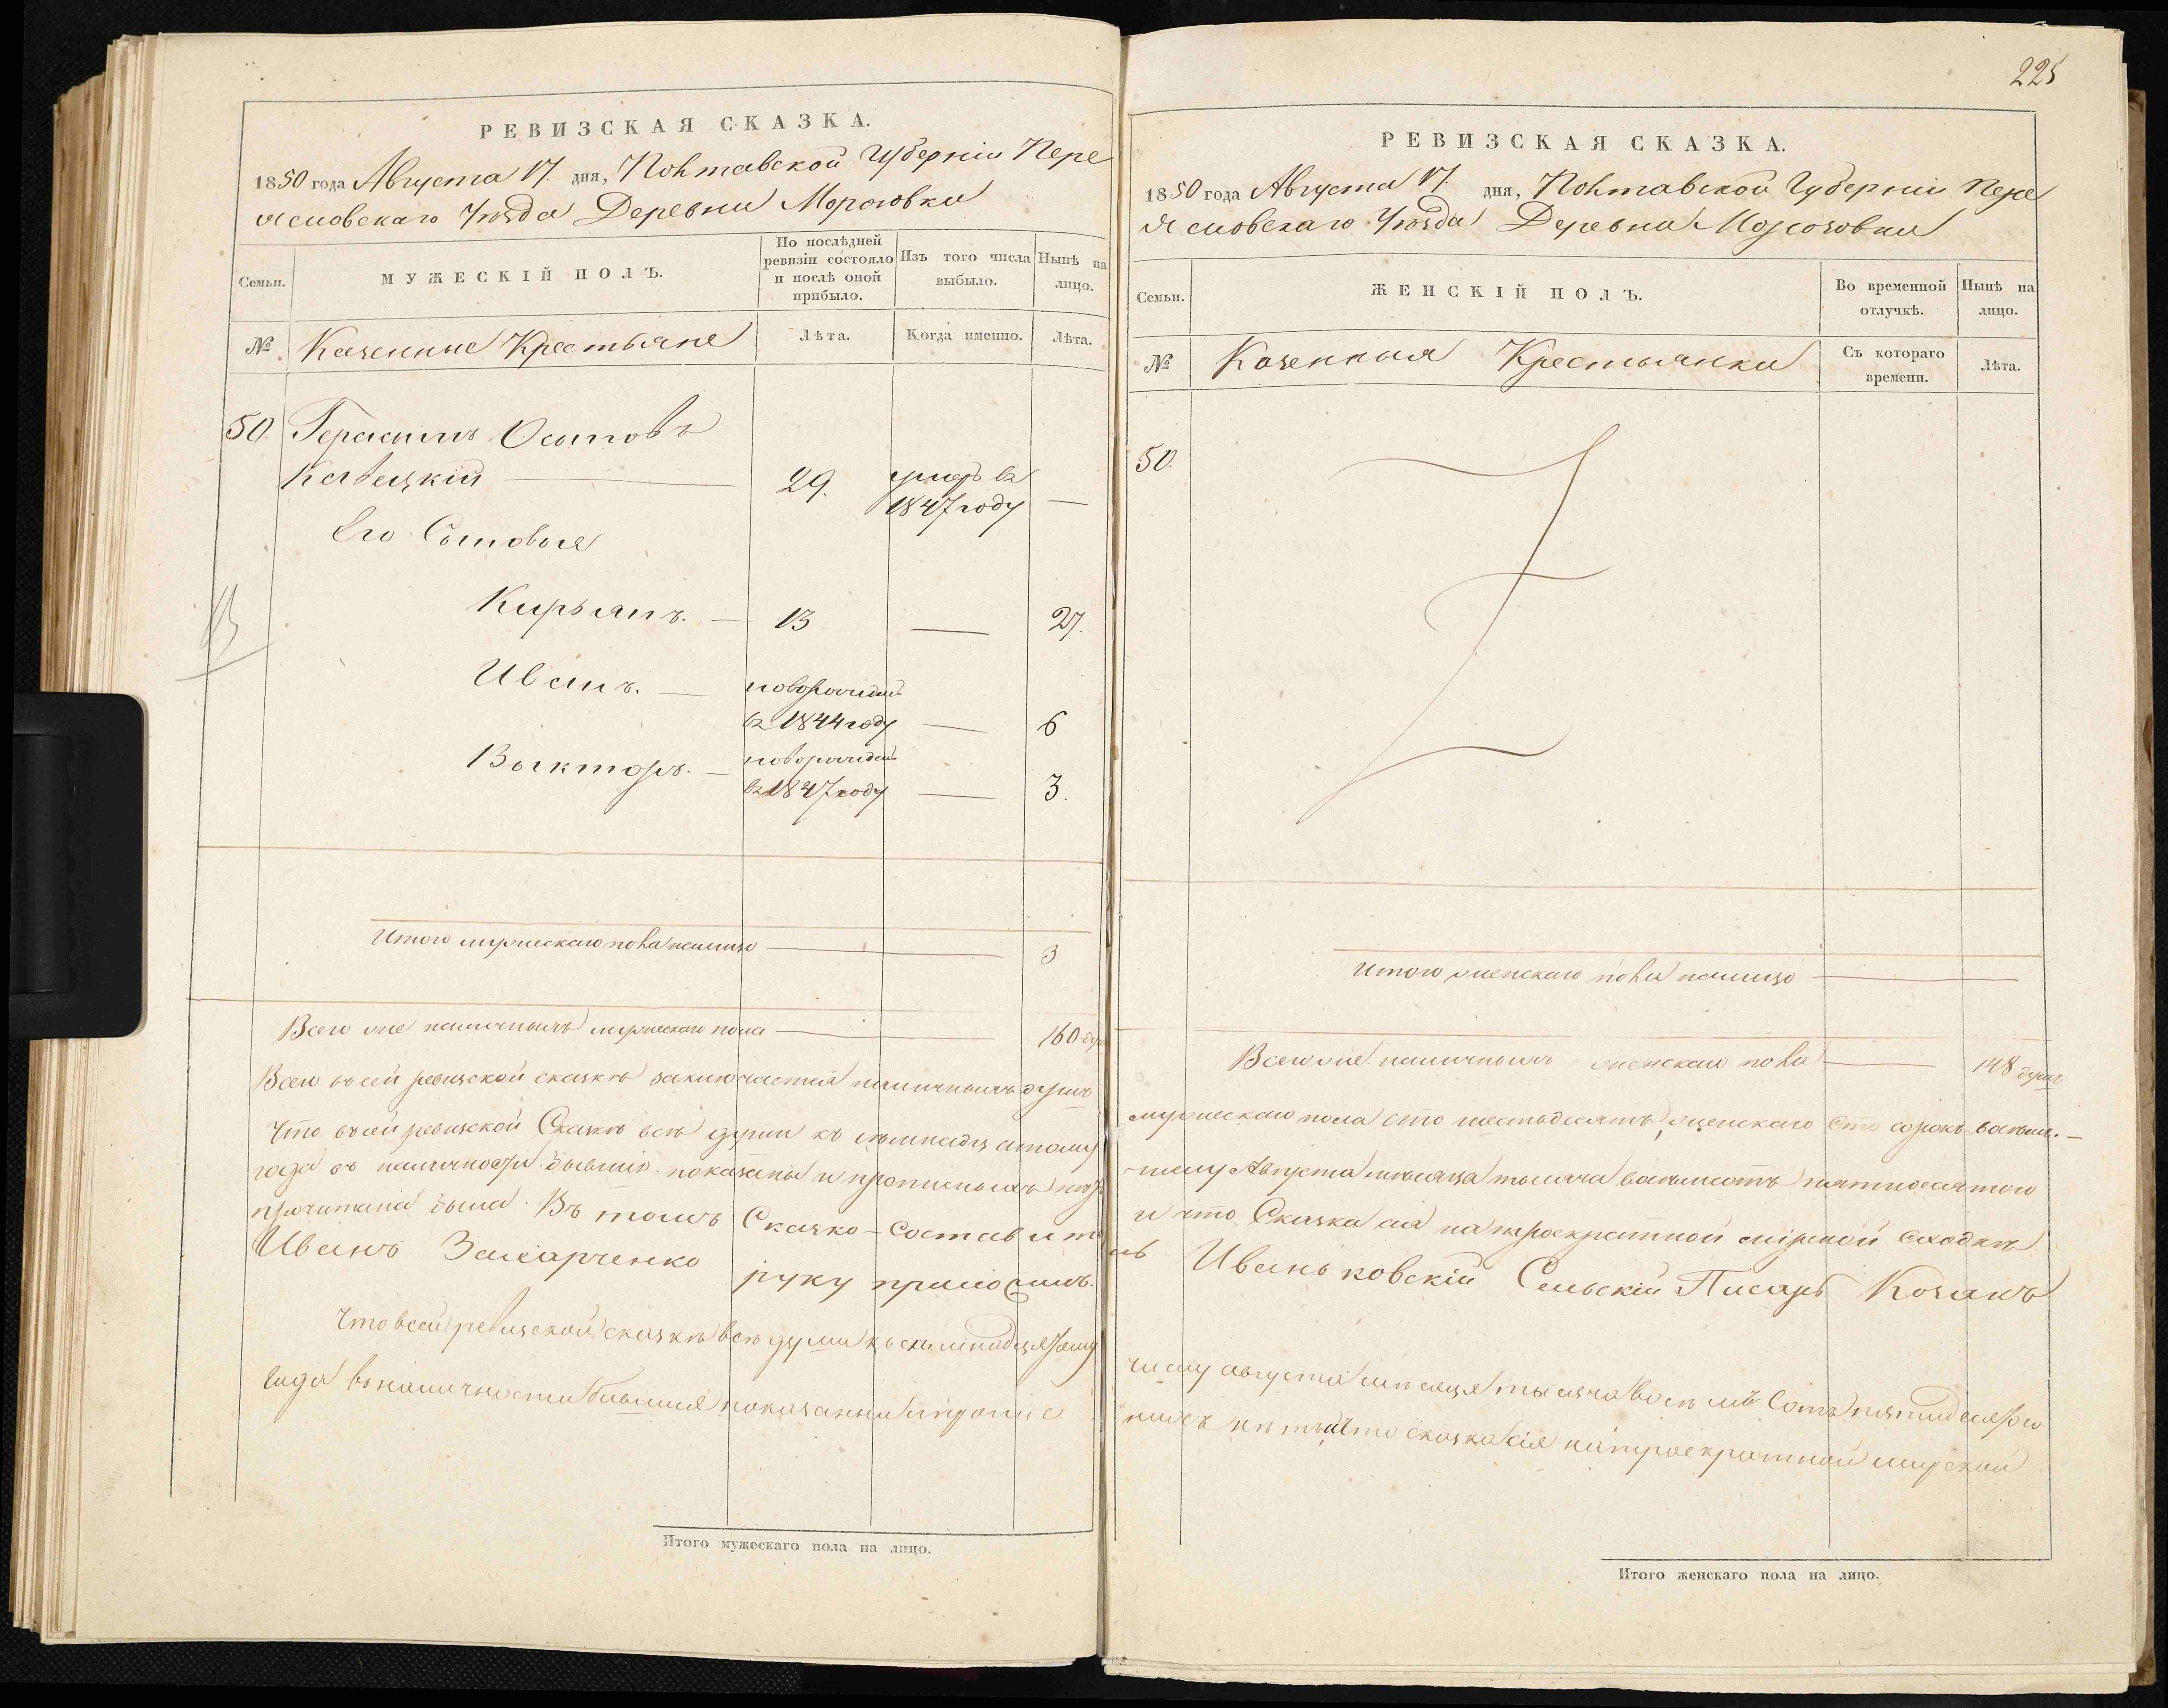 РЕВИЗСКАЯ СКАЗКА.
1850 года Августа 17. дня, Полтавской Губерніи Пере
яславскаго Уѣзда Деревни Морозовки
Семьи.
МУЖЕСКІЙ ПОЛЪ.
По послѣдней ревизіи состояло и послѣ оной прибыло.
Изъ того числа выбыло.
Нынѣ на лицо.
№
Казенные Крестьяне
Лѣта.
Когда именно.
Лѣта.
50. Герасимъ Осиповъ
Кавецкій — 29. умеръ въ 1847 году —
Его Сыновья
Кирьянъ. — 13 — 27.
13
Иванъ. — новорожден въ 1844 году — 6
Выкторъ. — новорожден въ 1847 году — 3.
Итого мужескаго пола налицо — 3
Всего же наличныхъ мужескаго пола — 160 душ
Всего въ сей ревизской сказкѣ заключается наличныхъ душъ
Что въ сей ревизской Сказкѣ всѣ души къ семнадцатому
года въ наличности бывшіе показаны и прописныхъ нѣтъ
прочитана была. Въ томъ Сказко-составите
Иванъ Захарченко руку приложилъ.
Что всей ревизской сказкѣ всѣ души къ семнадцятому
года въ наличности бывшия показанны ипропис
Итого мужескаго пола на лицо.
225
РЕВИЗСКАЯ СКАЗКА.
1850 года Августа 17. дня, Полтавской Губерніи Пере
яславскаго Уѣзда Деревни Морозовки
Семьи.
ЖЕНСКІЙ ПОЛЪ.
Во временной отлучкѣ.
Нынѣ на лицо.
№
Казенныя Крестьянки
Съ котораго времени.
Лѣта.
50.
Итого женскаго пола налицо —
Всего же наличныхъ женскаго пола — 148 душъ
мужескаго пола сто шестьдесятъ, женскаго сто сорокъ восемь. —
числу Августа мѣсяца тысяча восемьсотъ пятидесятого
и что Сказка сія на троекратной мірской сходкѣ
ль Иваньковскій Сельскій Писарь Козакъ
числу августа мѣсяця тысяча восѣмъ сотъ пятидесятого
ныхъ нѣтъ ичто сказка сія на троекратной мирской
Итого женскаго пола на лицо.